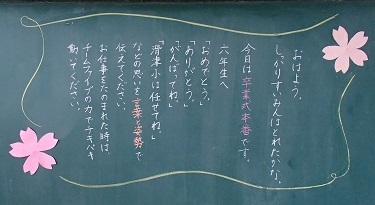 おはよう。
しっかりすいみんはとれたかな。
今日は卒業式本番です。
六年生へ
「おめでとう。」
「ありがとう。」
「がんばってね。」
「滑津小は任せてね。」
などの思いを言葉と姿勢で
伝えてください。
お仕事をたのまれた時は、
チームファイブの力でテキパキ
動いてください。